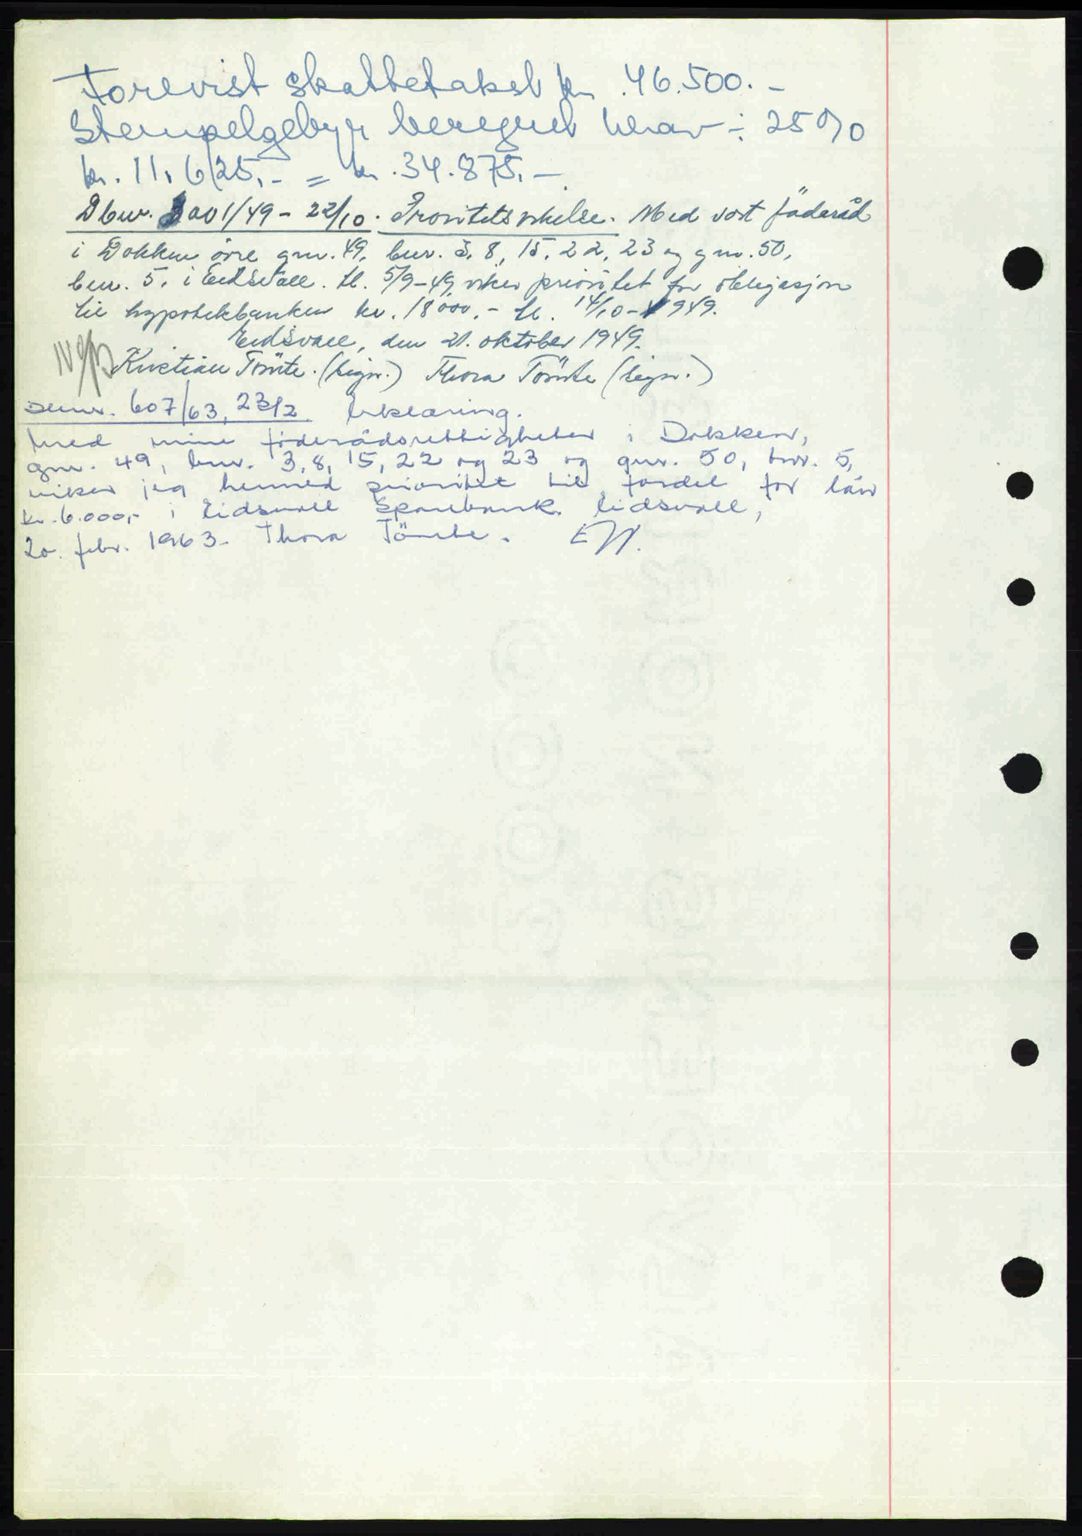 Forevist skattetakst kr. 46.500.-
Stempelgebyr beregnet herav ÷ 25%
kr. 11.625,- = kr. 34.875,-
Dbnr. 3001/49 - 22/10. Prioritetsvikelse. Med vort föderåd
i Dokken övre gnr. 49, bnr. 3, 8, 15, 22, 23 og gnr. 50,
bnr. 5, i Eidsvoll. tl. 5/9-49, viker prioritet for obligasjon
til hypotekbanken kr. 18000.- tl. 14/10-1949.
Eidsvoll, den 21. oktober 1949.
Kristian Tömte (sign.) Thora Tömte (sign.)
Dbnr. 607/63, 23/2 Erklæring.
Med mine föderådsrettigheter i Dokken,
gnr. 49, bnr. 3, 8, 15, 22 og 23 og gnr. 50, bnr. 5,
viker jeg herved prioritet til fordel for lån
kr. 6.000,- i Eidsvoll Sparebank. Eidsvoll,
20. febr. 1963. Thora Tömte.